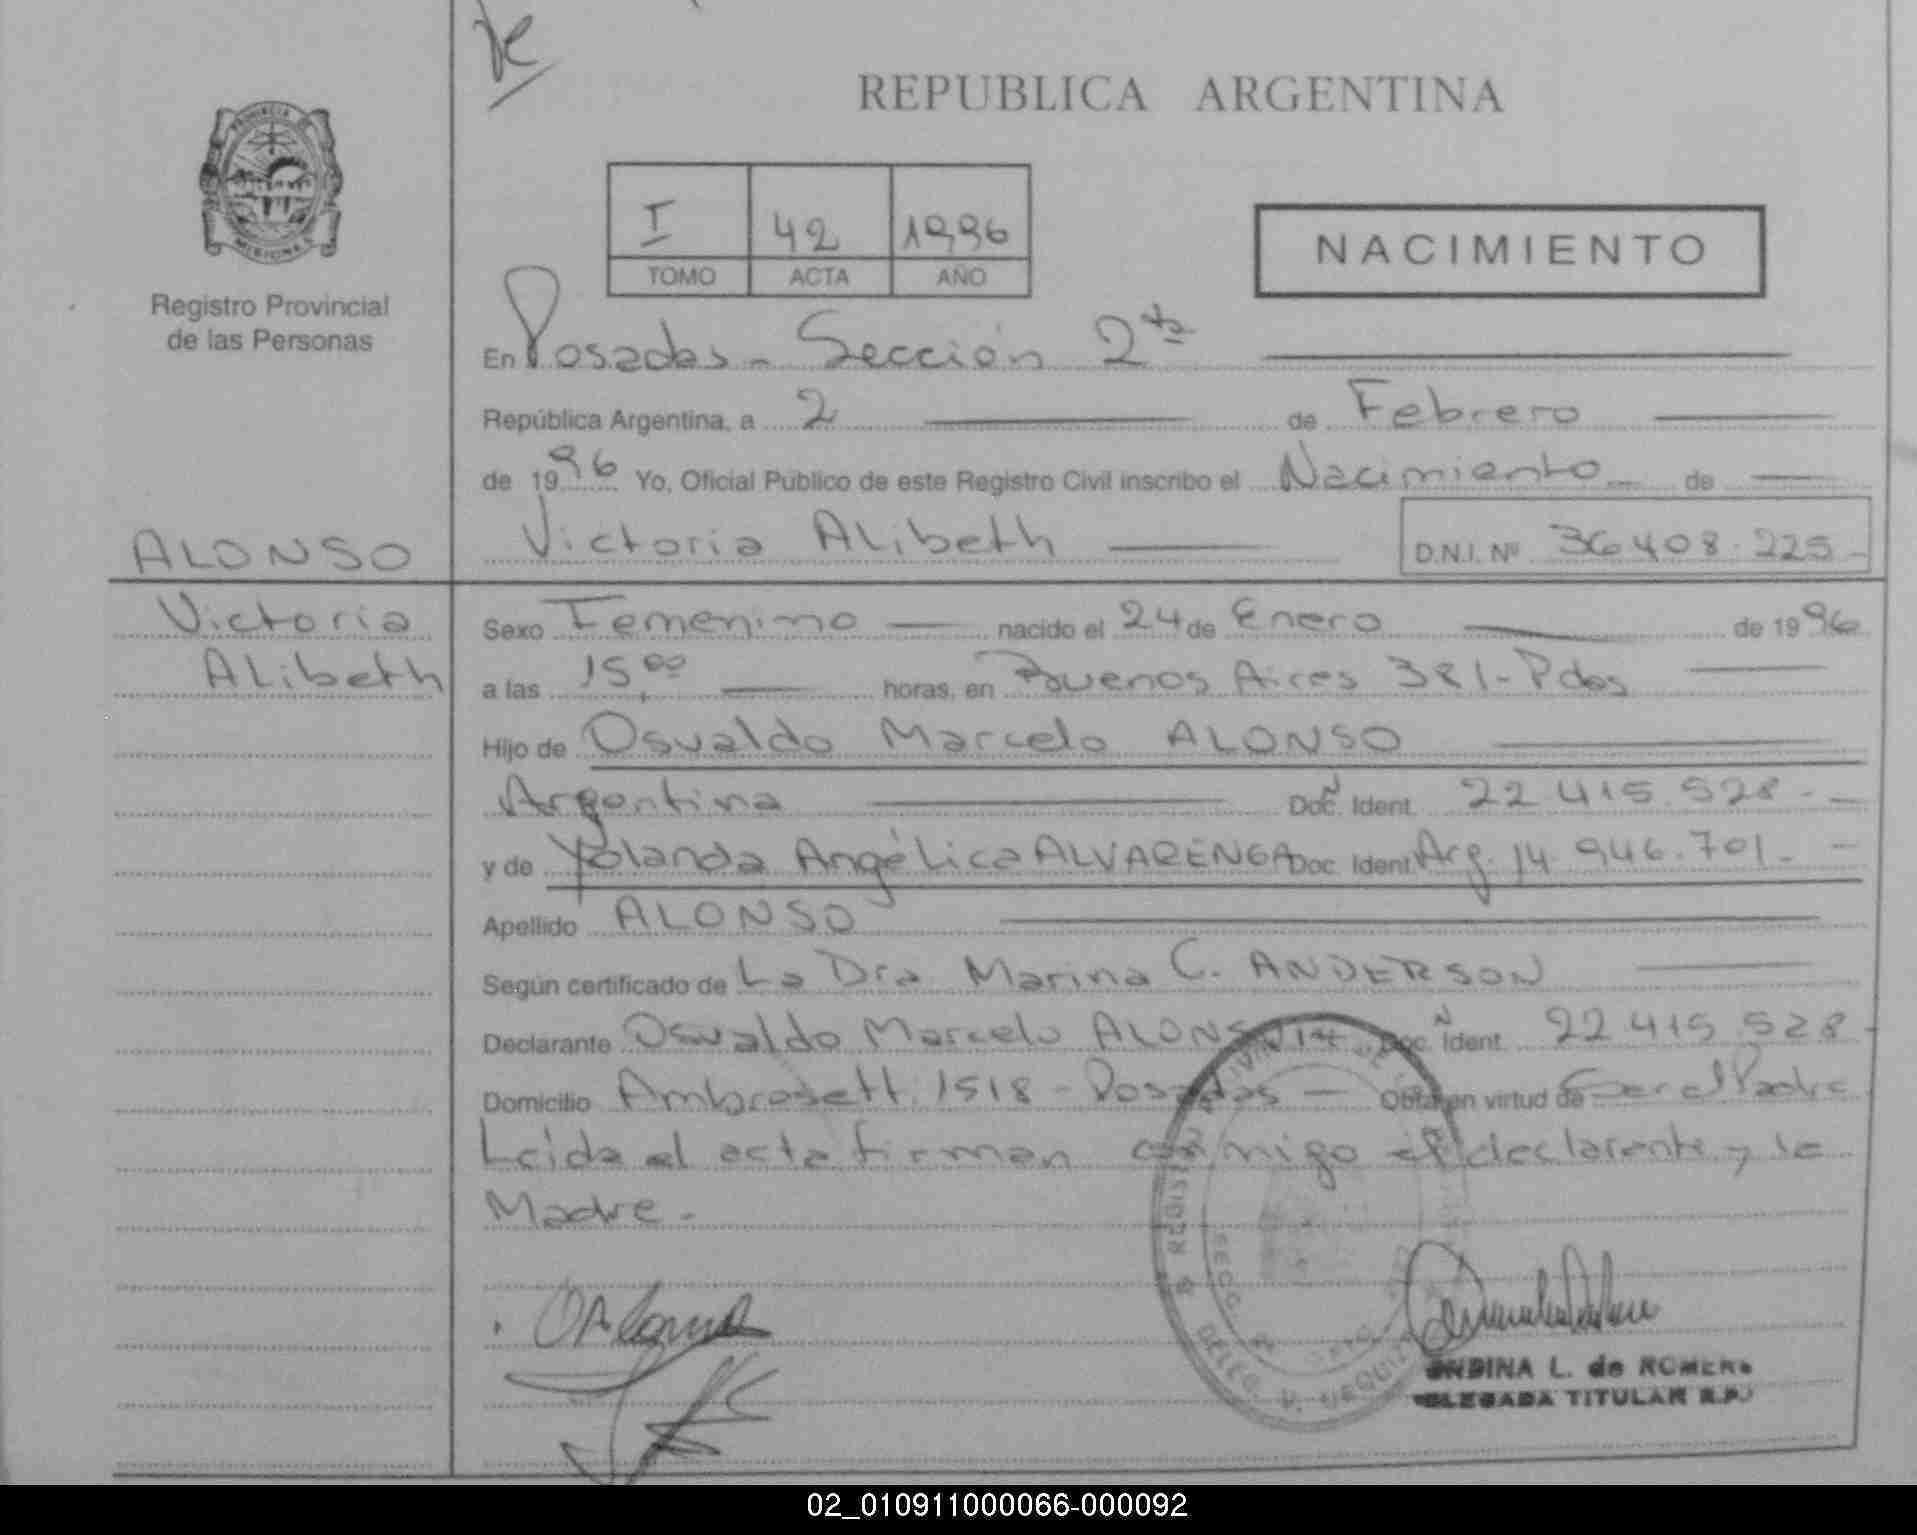 REPUBLICA ARGENTINA
PROVINCIA DE
MISIONES
Registro Provincial
de las Personas
I 42 1996
TOMO ACTA AÑO
NACIMIENTO
En Posadas - Sección 2ta
República Argentina, a 2 de Febrero
de 1996 Yo, Oficial Público de este Registro Civil inscribo el Nacimiento de
ALONSO
Victoria Alibeth
Victoria Alibeth D.N.I. Nº 36408.225-
Sexo Femenino nacido el 24 de Enero de 1996
a las 15,00 horas, en Buenos Aires 381-Pdas
Hijo de Osvaldo Marcelo ALONSO
Argentina Doc. Ident. 22.415.528.-
y de Yolanda Angélica ALVARENGA Doc. Ident. Arg. 14.946.701.-
Apellido ALONSO
Según certificado de La Dra. Marina C. ANDERSON
Declarante Osvaldo Marcelo ALONSO Doc. Ident. 22.415.528-
Domicilio Ambrosetti 1518 - Posadas - Obra en virtud de Ser el Padre
Leida el acta firman conmigo el declarante y la
Madre.-
SECC. 2
DELEG. V. URQUIZA
ONDINA L. de ROMERO
DELEGADA TITULAR R.P.
02_010911000066-000092